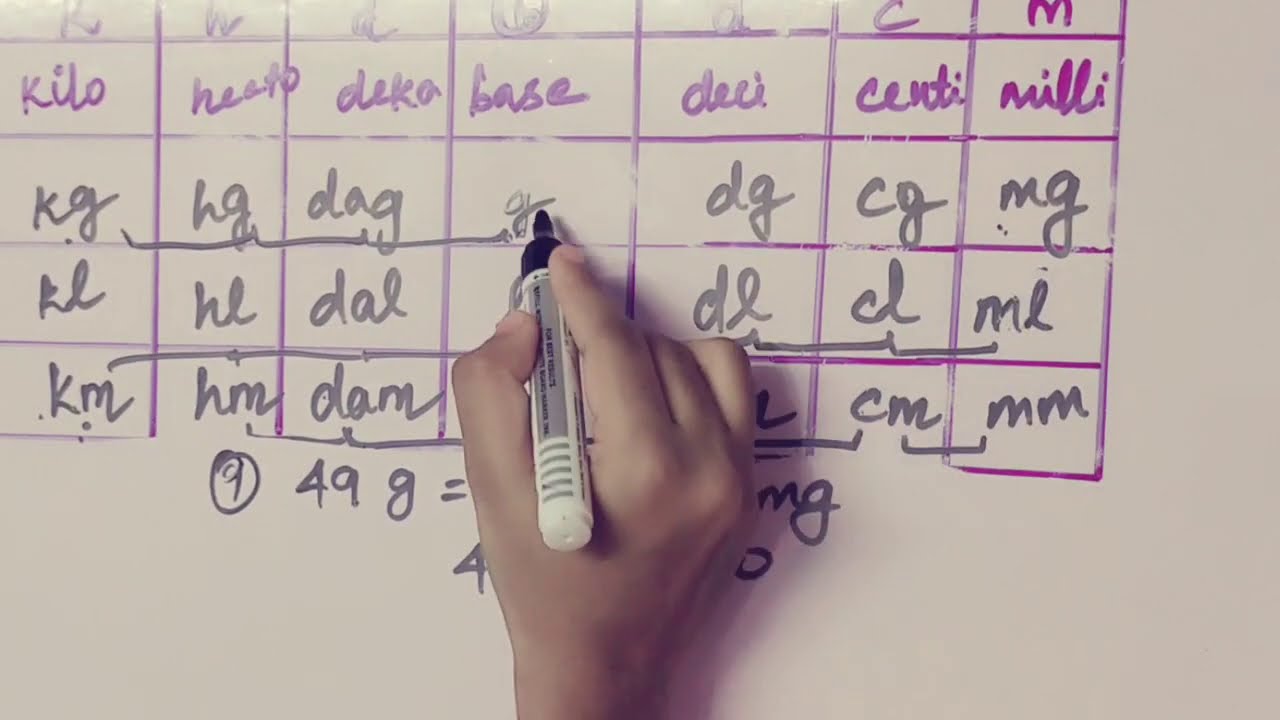 k h d b d c m
kilo hecto deka base deci centi milli
kg hg dag g dg cg mg
kl hl dal dl cl ml
km hm dam cm mm
9 49 g = mg
4 0
FOR BEST RESULTS